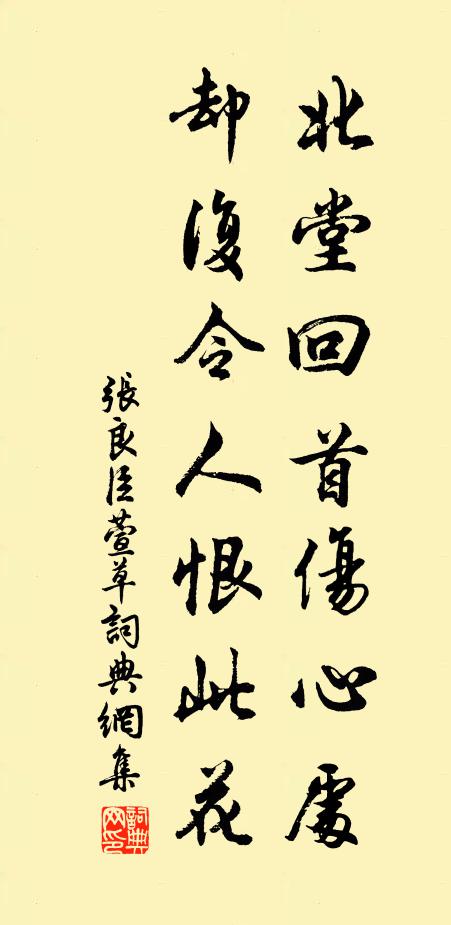 北堂回首傷心處
却復令人恨此花
張良臣萱草詞典網集
詞典網印